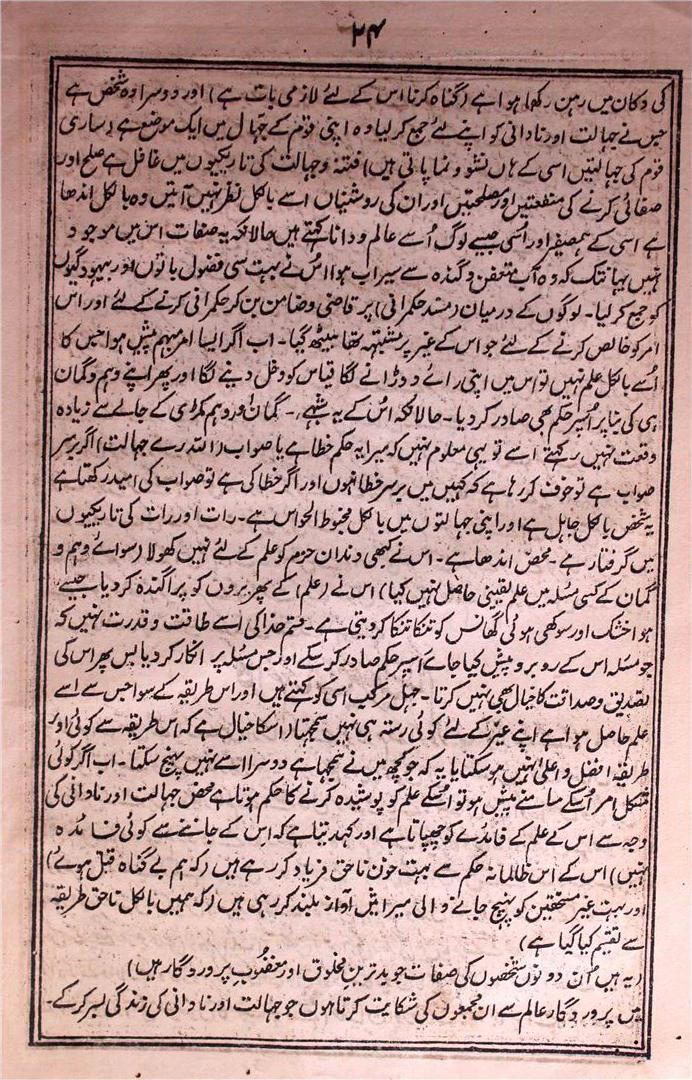 ۲۴
کی دکان میں رہن رکھا ہوا ہے (گناہ کرنا اس کے لئے لازمی بات ہے) اور دوسرا وہ شخص ہے
جس نے جہالت اور نادانی کو اپنے لئے جمع کر لیا وہ اپنی قوم کے جہال میں ایک موضع ہے (ساری
قوم کی جہالتیں اسی کے ہاں نشو و نما پاتی ہیں) فتنہ و جہالت کی تاریکیوں میں غافل ہے صلح اور
صفائی کرنے کی منفعتیں اور مصلحتیں اور ان کی روشنیاں اسے بالکل نظر نہیں آتیں وہ بالکل اندھا
ہے اسی کے ہمصفیر اور اُسی جیسے لوگ اُسے عالم و دانا کہتے ہیں حالانکہ یہ صفات اس میں موجود
نہیں یہانتک کہ وہ آب متعفن و گندہ سے سیراب ہوا اس نے بہت سی فضول باتوں اور بیہودگیوں
کو جمع کر لیا۔ لوگوں کے درمیان (مسند حکمرانی) پر قاضی و ضامن بن کر حکمرانی کرنے کے لئے اور اس
امر کو خالص کرنے کے لئے جو اس کے غیر پر مشتبہ تھا بیٹھ گیا۔ اب اگر ایسا امر مبہم پیش ہوا جس کا
اُسے بالکل علم نہیں تو اس میں اپنی رائے دوڑانے لگا قیاس کو دخل دینے لگا اور پھر اپنے وہم و گمان
ہی کی بنا پر اُسپر حکم بھی صادر کر دیا۔ حالانکہ اس کے یہ شبہے۔ گمان اور وہم مکڑی کے جالے سے زیادہ
وقعت نہیں رکھتے اسے تو یہی معلوم نہیں کہ میرا یہ حکم خطا ہے یا صواب (اللہ رے جہالت) اگر برسر
صواب ہے تو خوف کر رہا ہے کہ کہیں میں برسر خطا نہوں اور اگر خطا کی ہے تو صواب کی امید رکھتا ہے
یہ شخص بالکل جاہل ہے اور اپنی جہالتوں میں بالکل مخبوط الحواس ہے۔ رات اور رات کی تاریکیوں
میں گرفتار ہے۔ محض اندھا ہے۔ اس نے کبھی دندان حزم کو علم کے لئے نہیں کھولا (سوائے وہم و
گمان کے کسی مسئلہ میں علم یقینی حاصل نہیں کیا) اس نے (علم) کے پھریروں کو پراگندہ کر دیا جیسے
ہوا خشک اور سوکھی ہوئی گھانس کو تنکا تنکا کر دیتی ہے۔ قسم خدا کی اسے طاقت و قدرت نہیں کہ
جو مسئلہ اس کے روبرو پیش کیا جائے اسپر حکم صادر کر سکے اور جس مسئلہ پر انکار کر دیا بس پھر اس کی
تصدیق و صداقت کا خیال بھی نہیں کرتا۔ جہل مرکب اسی کو کہتے ہیں اور اس طریقہ کے سوا جس سے اسے
علم حاصل ہوا ہے اپنے غیر کے لئے کوئی رستہ ہی نہیں سمجھتا (اسکا خیال ہے کہ اس طریقہ سے کوئی اور
طریقہ افضل و اعلیٰ نہیں ہو سکتا یا یہ کہ جو کچھ میں نے سمجھا ہے دوسرا اسے نہیں پہنچ سکتا۔ اب اگر کوئی
مشکل امر اُسکے سامنے پیش ہو تو اُسکے علم کو پوشیدہ کرنے کا حکم ہوتا ہے محض جہالت اور نادانی کی
وجہ سے اس کے علم کے فائدے کو چھپاتا ہے اور کہدیتا ہے کہ اس کے جاننے سے کوئی فائدہ
نہیں) اس کے اس ظالمانہ حکم سے بہت خون ناحق فریاد کر رہے ہیں (کہ ہم بے گناہ قتل ہوئے)
اور بہت غیر مستحقین کو پہنچ جانے والی میراثیں آواز بلند کر رہی ہیں (کہ ہمیں بالکل ناحق طریقہ
سے تقسیم کیا گیا ہے)
(یہ ہیں اُن دونوں شخصوں کی صفات جو بدترین مخلوق اور مغضوب پروردگار ہیں)
میں پروردگار عالم سے ان مجمعوں کی شکایت کرتا ہوں جو جہالت اور نادانی کی زندگی بسر کر کے۔